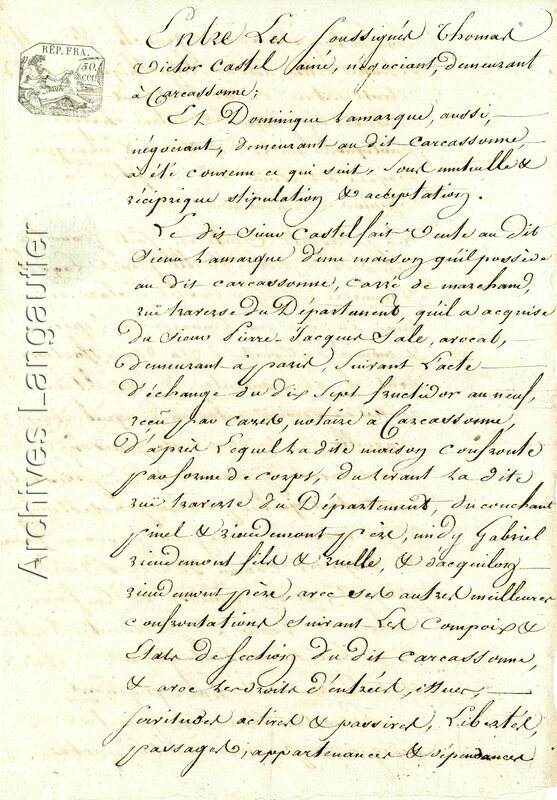 RÉP. FRA.
50
cen
Entre Les Soussignés Thomas
Victor Castel ainé, négociant, demeurant
à Carcassonne;
Et Dominique Lamarque, aussi,
négociant, demeurant au dit Carcassonne,
a été convenu ce qui suit, sous mutuelle &
réciprique stipulation & acceptation.
Le dit sieur Castel fait vente au dit
sieur Lamarque d'une maison qu'il possède
au dit Carcassonne, carré de marchand,
rüe traverse du Département, qu'il a acquise
du sieur Pierre-Jacques Sale, avocat,
demeurant à paris, suivant L'acte
d'échange du dix sept fructidor an neuf,
reçu par cares, notaire à Carcassonne,
D'après Lequel La dite maison confronte
par forme de corps, du levant La dite
rüe traverse du Département, du couchant
pinel & rieudemont père, midy Gabriel
rieudemont fils & ruelle, & d'acquilon
rieudemont père, avec ses autres meilleures
confrontations suivant Les Compoix &
Etats de section du dit Carcassonne,
& avec ses droits d'entrées, issues,
servitudes actives & passives, Libertés,
passages, appartenances & dépendances
Archives Langautier